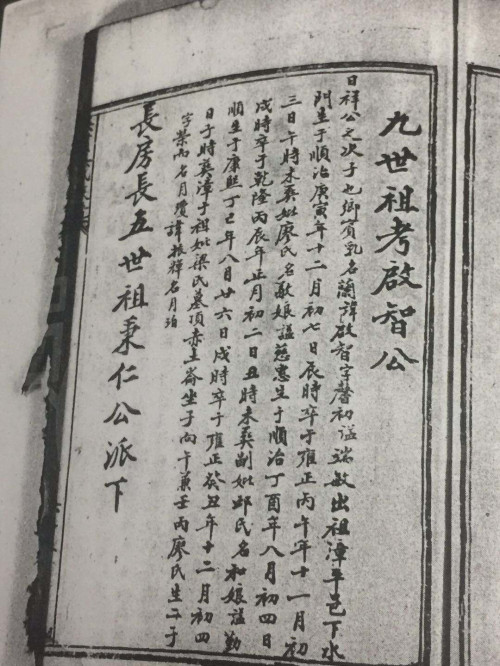 九世祖考啟智公
日祥公之次子也鄉賓乳名蘭諱啟智字馨初謚端敏出祖漳平邑下水
門生于順治庚寅年十二月初七日辰時卒于雍正丙午年十一月初
三日午時未葬妣廖氏名敵娘謚慈惠生于順治丁酉年八月初四日
戌時卒于乾隆丙辰年正月初二日丑時未葬副妣邱氏名和娘謚勤
順生于康熙丁巳年八月廿六日戌時卒于雍正癸丑年十二月初四
日子時葬漳于祖妣梁氏墓項赤土崙坐子向午兼壬丙廖氏生二子
字榮丙名月瓊諱振輝名月珀
長房長五世祖秉仁公派下